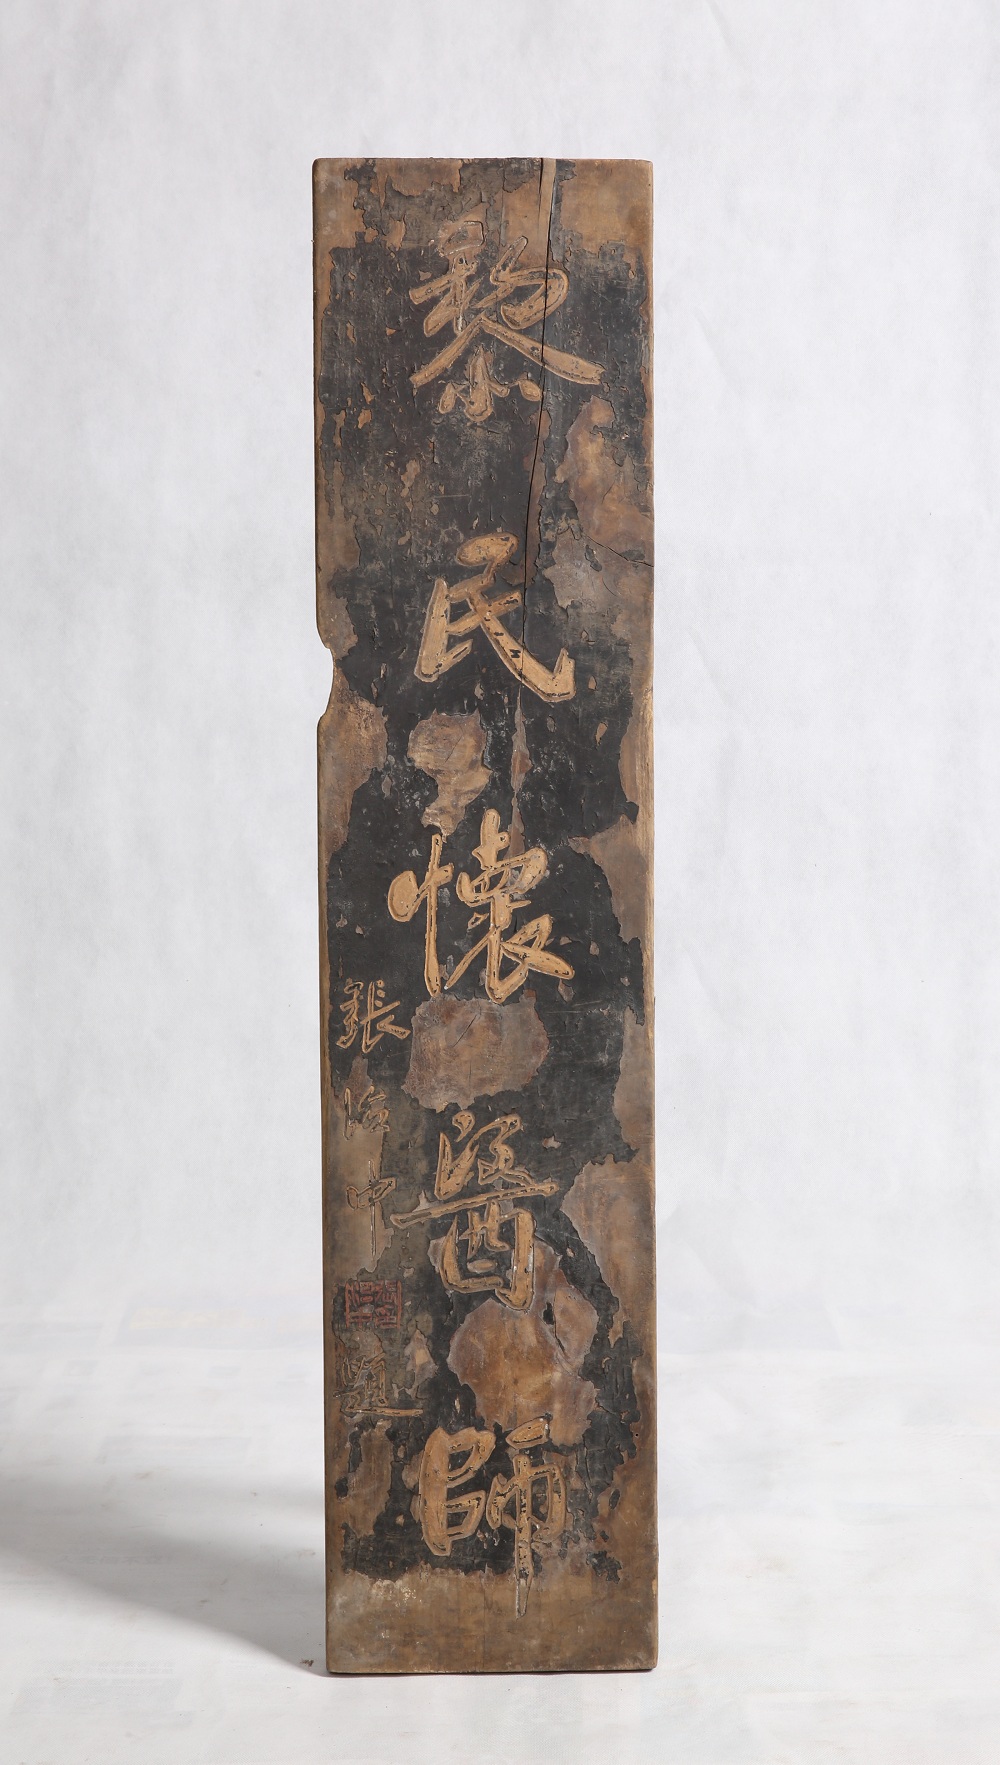 黎民懷醫師
張治中題